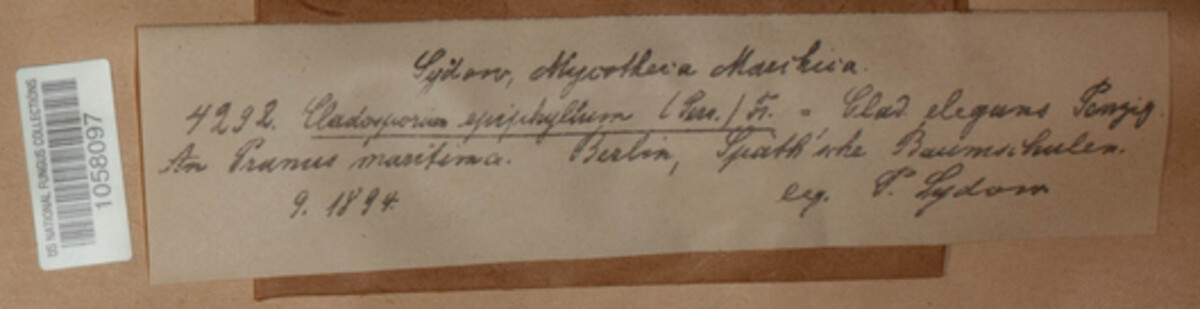 US NATIONAL FUNGUS COLLECTIONS
1058097
Sydow, Mycotheca Marchica.
4292. Cladosporium epiphyllum (Pers.) Fr. = Clad. elegans Penzig.
An Prunus maritima. Berlin, Späth'sche Baumschulen.
9. 1894. leg. P. Sydow